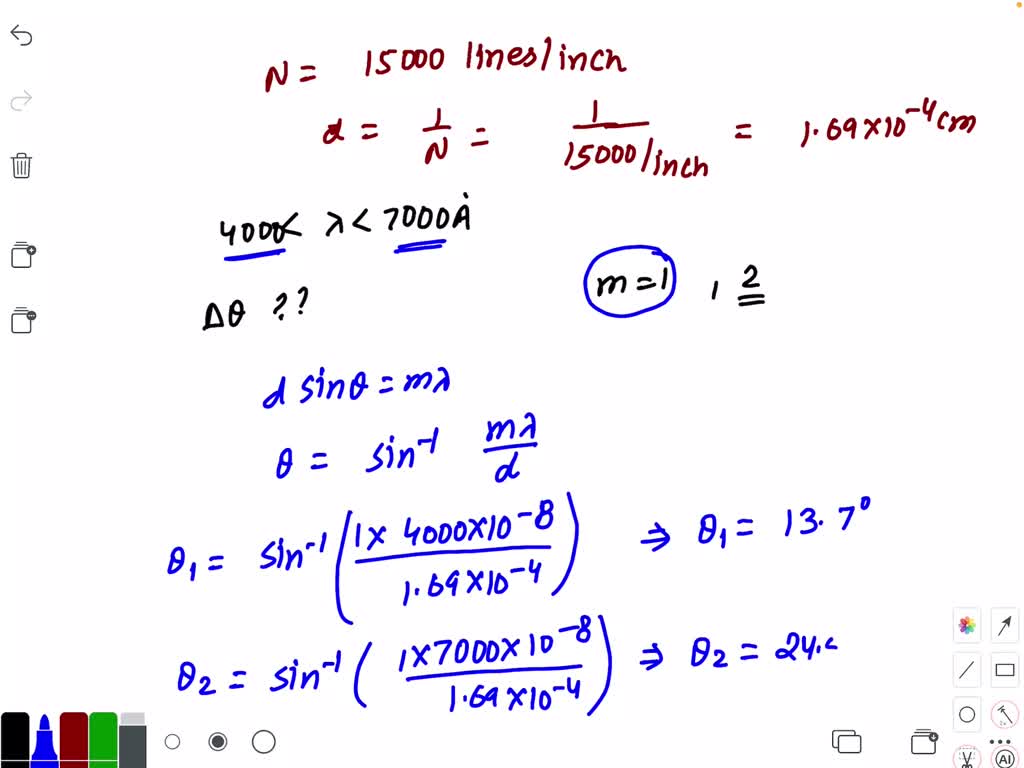 N = 15000 lines/inch
d = 1/N = 1/15000/inch = 1.69×10⁻⁴ cm
4000< λ < 7000Å
m = 1 , 2
Δθ ??
d sinθ = mλ
θ = sin⁻¹ mλ/d
θ₁ = sin⁻¹ (1× 4000×10⁻⁸ / 1.69×10⁻⁴) ⇒ θ₁ = 13.7°
θ₂ = sin⁻¹ (1×7000×10⁻⁸ / 1.69×10⁻⁴) ⇒ θ₂ = 24.
AI